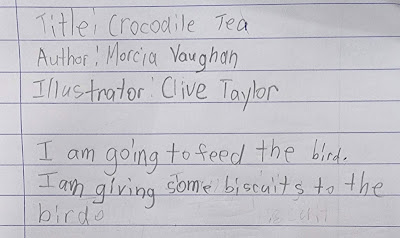 Title: Crocodile Tea
Author: Morcia Vaughan
Illustrator: Clive Taylor
I am going to feed the bird.
I am giving some biscuits to the
bird.